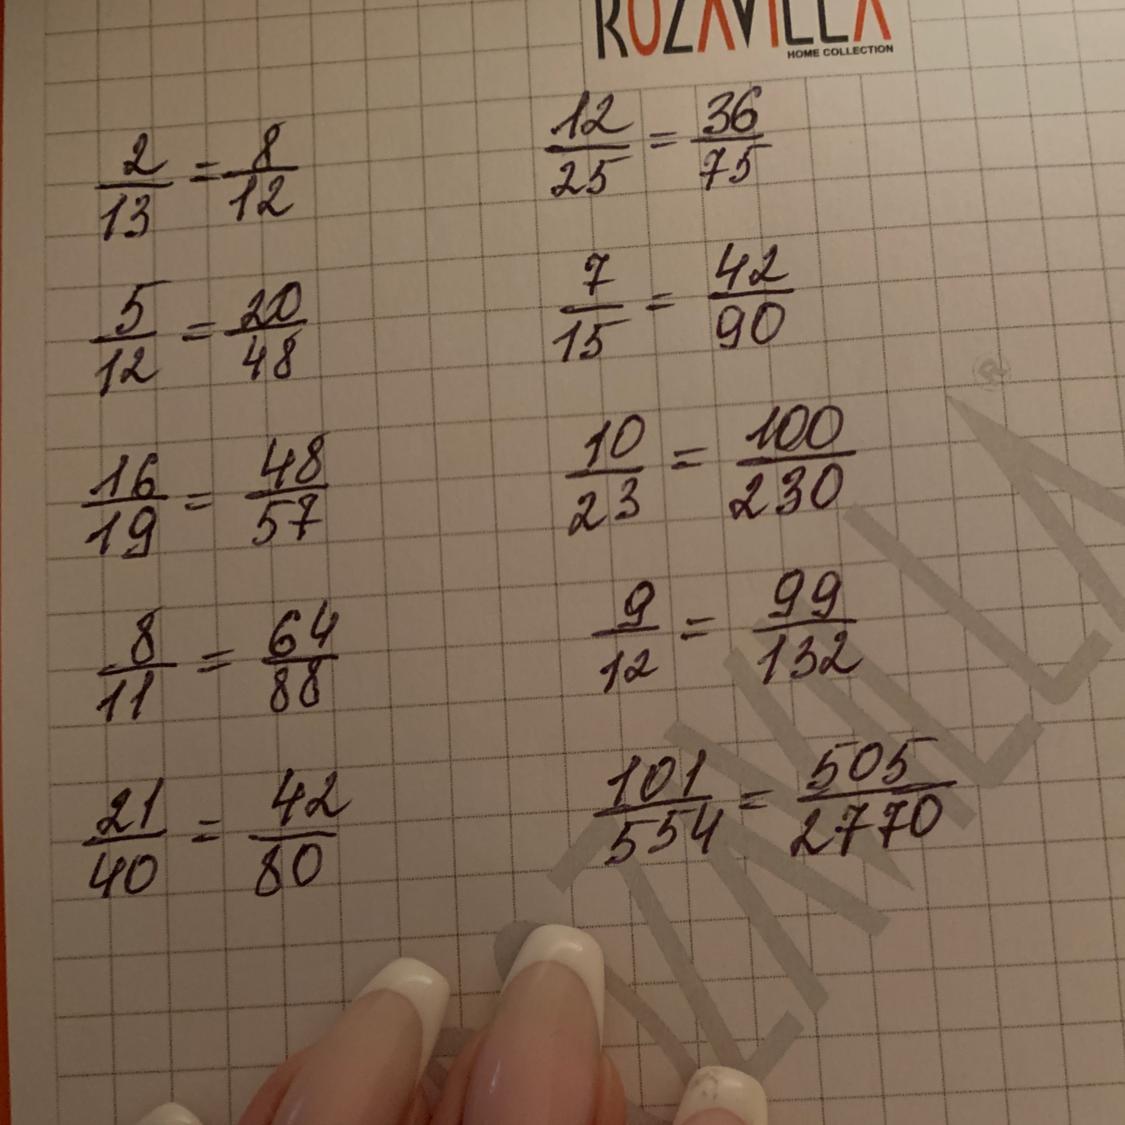 ROZAVILLA
HOME COLLECTION
2/13 = 8/12
5/12 = 20/48
16/19 = 48/57
8/11 = 64/88
21/40 = 42/80
12/25 = 36/75
7/15 = 42/90
10/23 = 100/230
9/12 = 99/132
101/554 = 505/2770
ROZAVILLA®